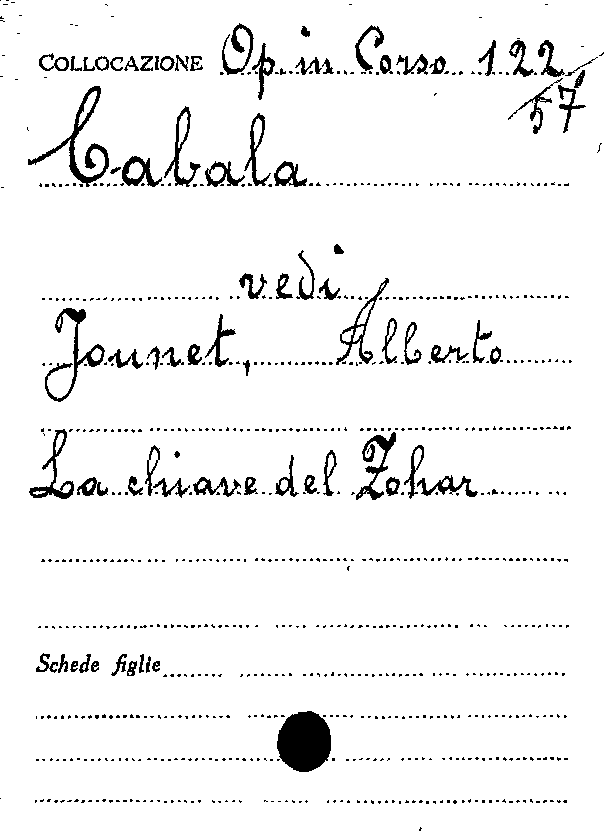 COLLOCAZIONE Op. in Corso 122/57
Cabala
vedi
Jounet, Alberto
La chiave del Zohar.
Schede figlie